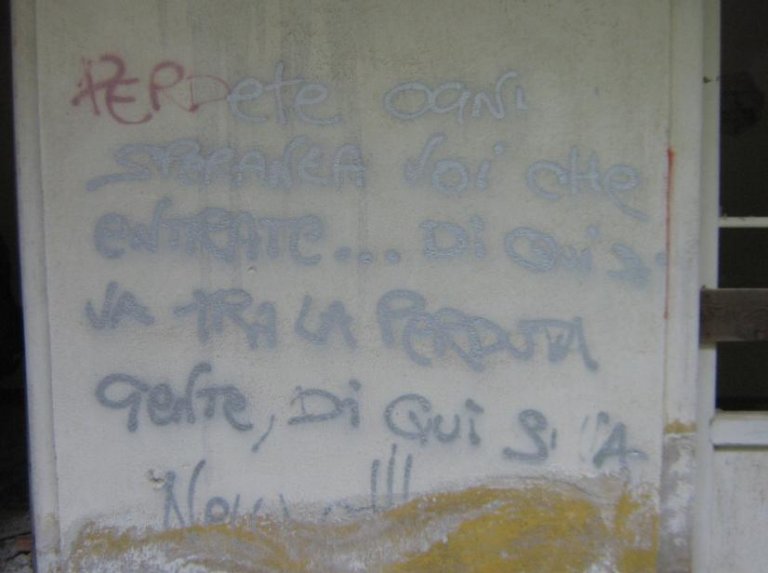 PERDete OGNi
SPERANZA VOi CHe
ENTRATE... Di Qui Si
VA TRA LA PERDUTA
GENTE, Di Qui Si VA